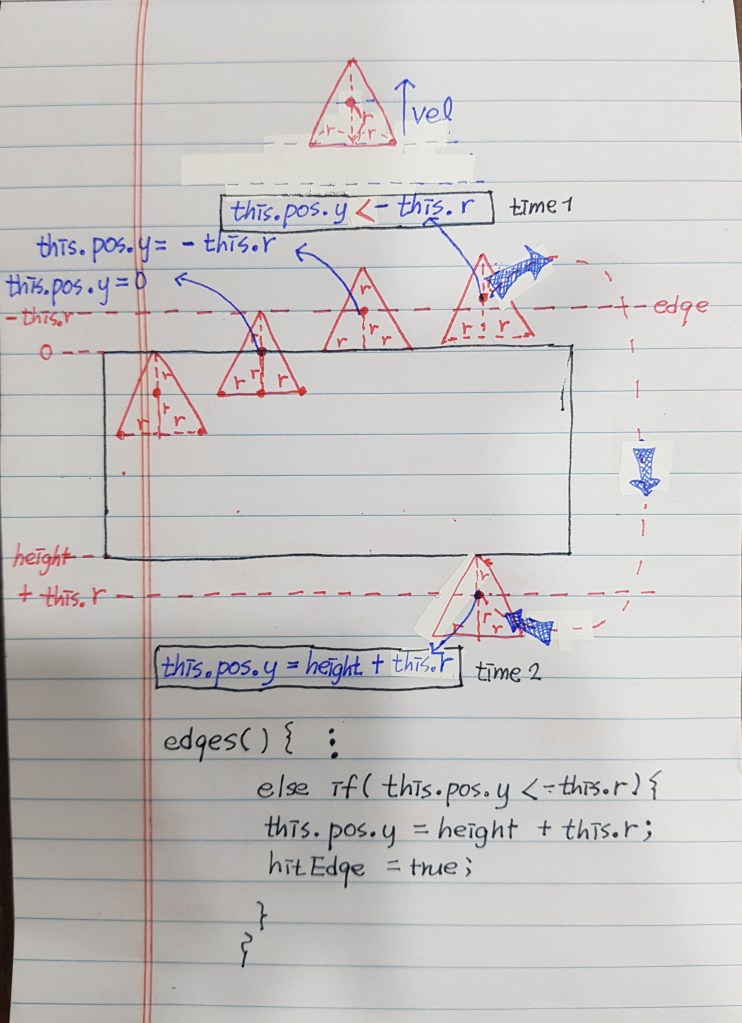 vel
r
r r
this.pos.y < - this.r time 1
this.pos.y = - this.r
this.pos.y = 0
- this.r
edge
0
r
r
r r
r r r
r
r r
r r
height
+ this.r
r
r
r r
this.pos.y = height + this.r time 2
edges() { :
else if( this.pos.y < - this.r) {
this.pos.y = height + this.r;
hitEdge = true;
}
{